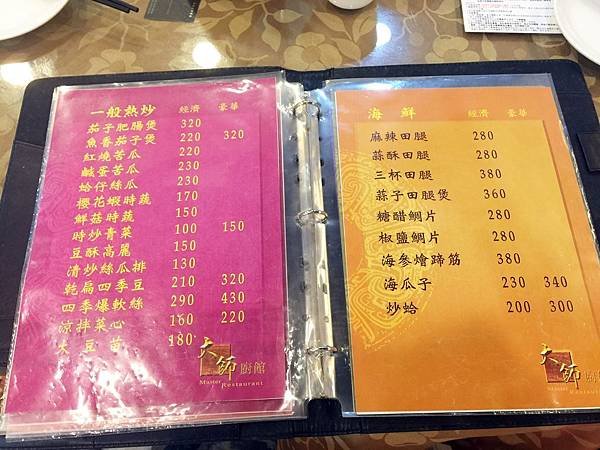 一般熱炒 經濟 豪華
茄子肥腸煲 320
魚香茄子煲 220 320
紅燒苦瓜 220
鹹蛋苦瓜 230
蛤仔絲瓜 230
櫻花蝦時蔬 170
鮮菇時蔬 150
時炒青菜 100 150
豆酥高麗 150
清炒絲瓜排 130
乾扁四季豆 210 320
四季爆軟絲 290 430
涼拌菜心 160 220
大豆苗 180
大師廚館
Master Restaurant
海鮮 經濟 豪華
麻辣田腿 280
蒜酥田腿 280
三杯田腿 380
蒜子田腿煲 360
糖醋鯛片 280
椒鹽鯛片 280
海參燴蹄筋 380
海瓜子 230 340
炒蛤 200 300
大師廚
Master